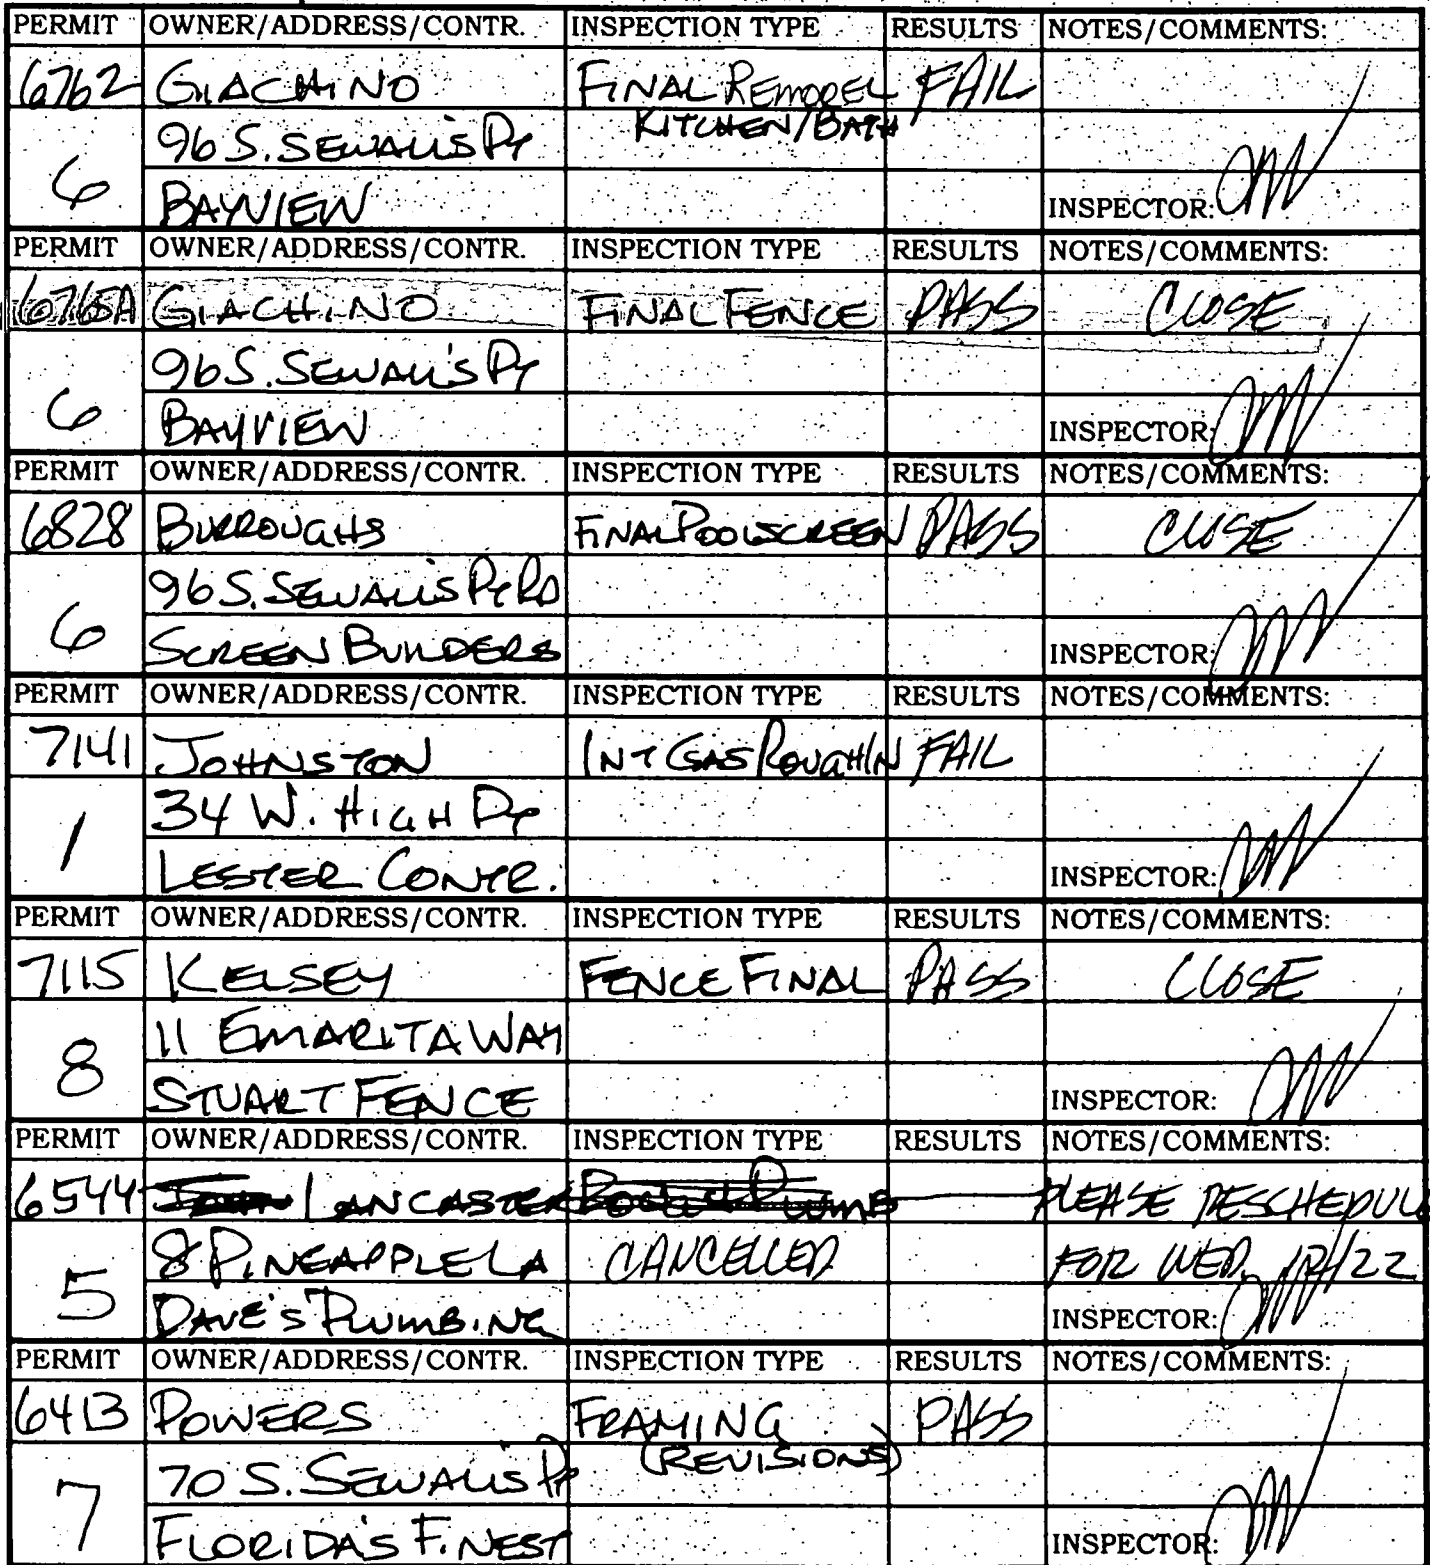 PERMIT OWNER/ADDRESS/CONTR. INSPECTION TYPE RESULTS NOTES/COMMENTS:
6762 GIACHINO FINAL REMODEL FAIL
6 96 S. SEWALL'S PT KITCHEN/BATH
BAYVIEW INSPECTOR:
PERMIT OWNER/ADDRESS/CONTR. INSPECTION TYPE RESULTS NOTES/COMMENTS:
GIACHINO FINAL FENCE PASS CLOSE
6 96 S. SEWALL'S PT
BAYVIEW INSPECTOR:
PERMIT OWNER/ADDRESS/CONTR. INSPECTION TYPE RESULTS NOTES/COMMENTS:
6828 BURROUGHS FINAL POOLSCREEN PASS CLOSE
6 96 S. SEWALL'S PT RD
SCREEN BUILDERS INSPECTOR:
PERMIT OWNER/ADDRESS/CONTR. INSPECTION TYPE RESULTS NOTES/COMMENTS:
7141 JOHNSTON INT GAS ROUGH IN FAIL
1 34 W. HIGH PT
LESTER CONTR. INSPECTOR:
PERMIT OWNER/ADDRESS/CONTR. INSPECTION TYPE RESULTS NOTES/COMMENTS:
7115 KELSEY FENCE FINAL PASS CLOSE
8 11 EMARITA WAY
STUART FENCE INSPECTOR:
PERMIT OWNER/ADDRESS/CONTR. INSPECTION TYPE RESULTS NOTES/COMMENTS:
6544 LANCASTER PLEASE RESCHEDULE
5 8 PINEAPPLE LA CANCELLED FOR WED. 12/22
DAVE'S PLUMBING INSPECTOR:
PERMIT OWNER/ADDRESS/CONTR. INSPECTION TYPE RESULTS NOTES/COMMENTS:
6413 POWERS FRAMING PASS
7 70 S. SEWALL'S PT (REVISIONS)
FLORIDA'S FINEST INSPECTOR: